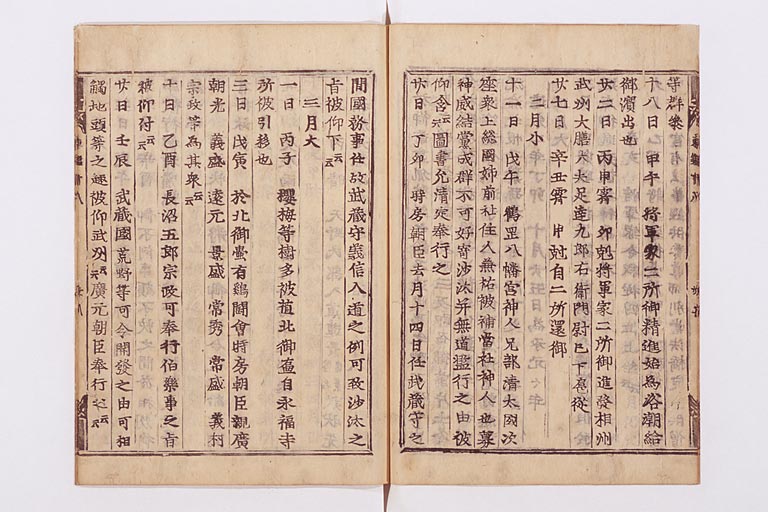 等群參
十八日 甲午 將軍家二所御精進始爲浴潮給
御濱出也
廿二日 丙申霽 卯尅將軍家二所御進發相州
武州大膳大夫足達九郎右衛門尉已下扈從
廿七日 辛丑霽 尅自二所還御
二月小
十一日 戊午 鶴岡八幡宮神人兄部清太國次
座衆上総國姉前社住人兼祐被補當社神人也募
神威結黨成群不可好寄沙汰并無道濫行之由被
仰含云云圖書允清定奉行之
廿日 丁卯 時房朝臣去月十四日任武藏守之
間國務事任故武藏守義信入道之例可致沙汰之
旨被仰下云云
三月大
一日 丙子 櫻梅等樹多被植北御壷自永福寺
所被引移也
三日 戊寅 於北御壷有鷄鬪會時房朝臣親廣
朝光 義盛 遠元 景盛 常秀 常盛 義村
宗政等爲其衆云云
十日 乙酉 長沼五郎宗政可奉行伯樂事之旨
被仰付云云
廿日 壬辰 武藏國荒野等可令開發之由可相
觸地頭等之趣被仰武州云云廣元朝臣奉行之云云